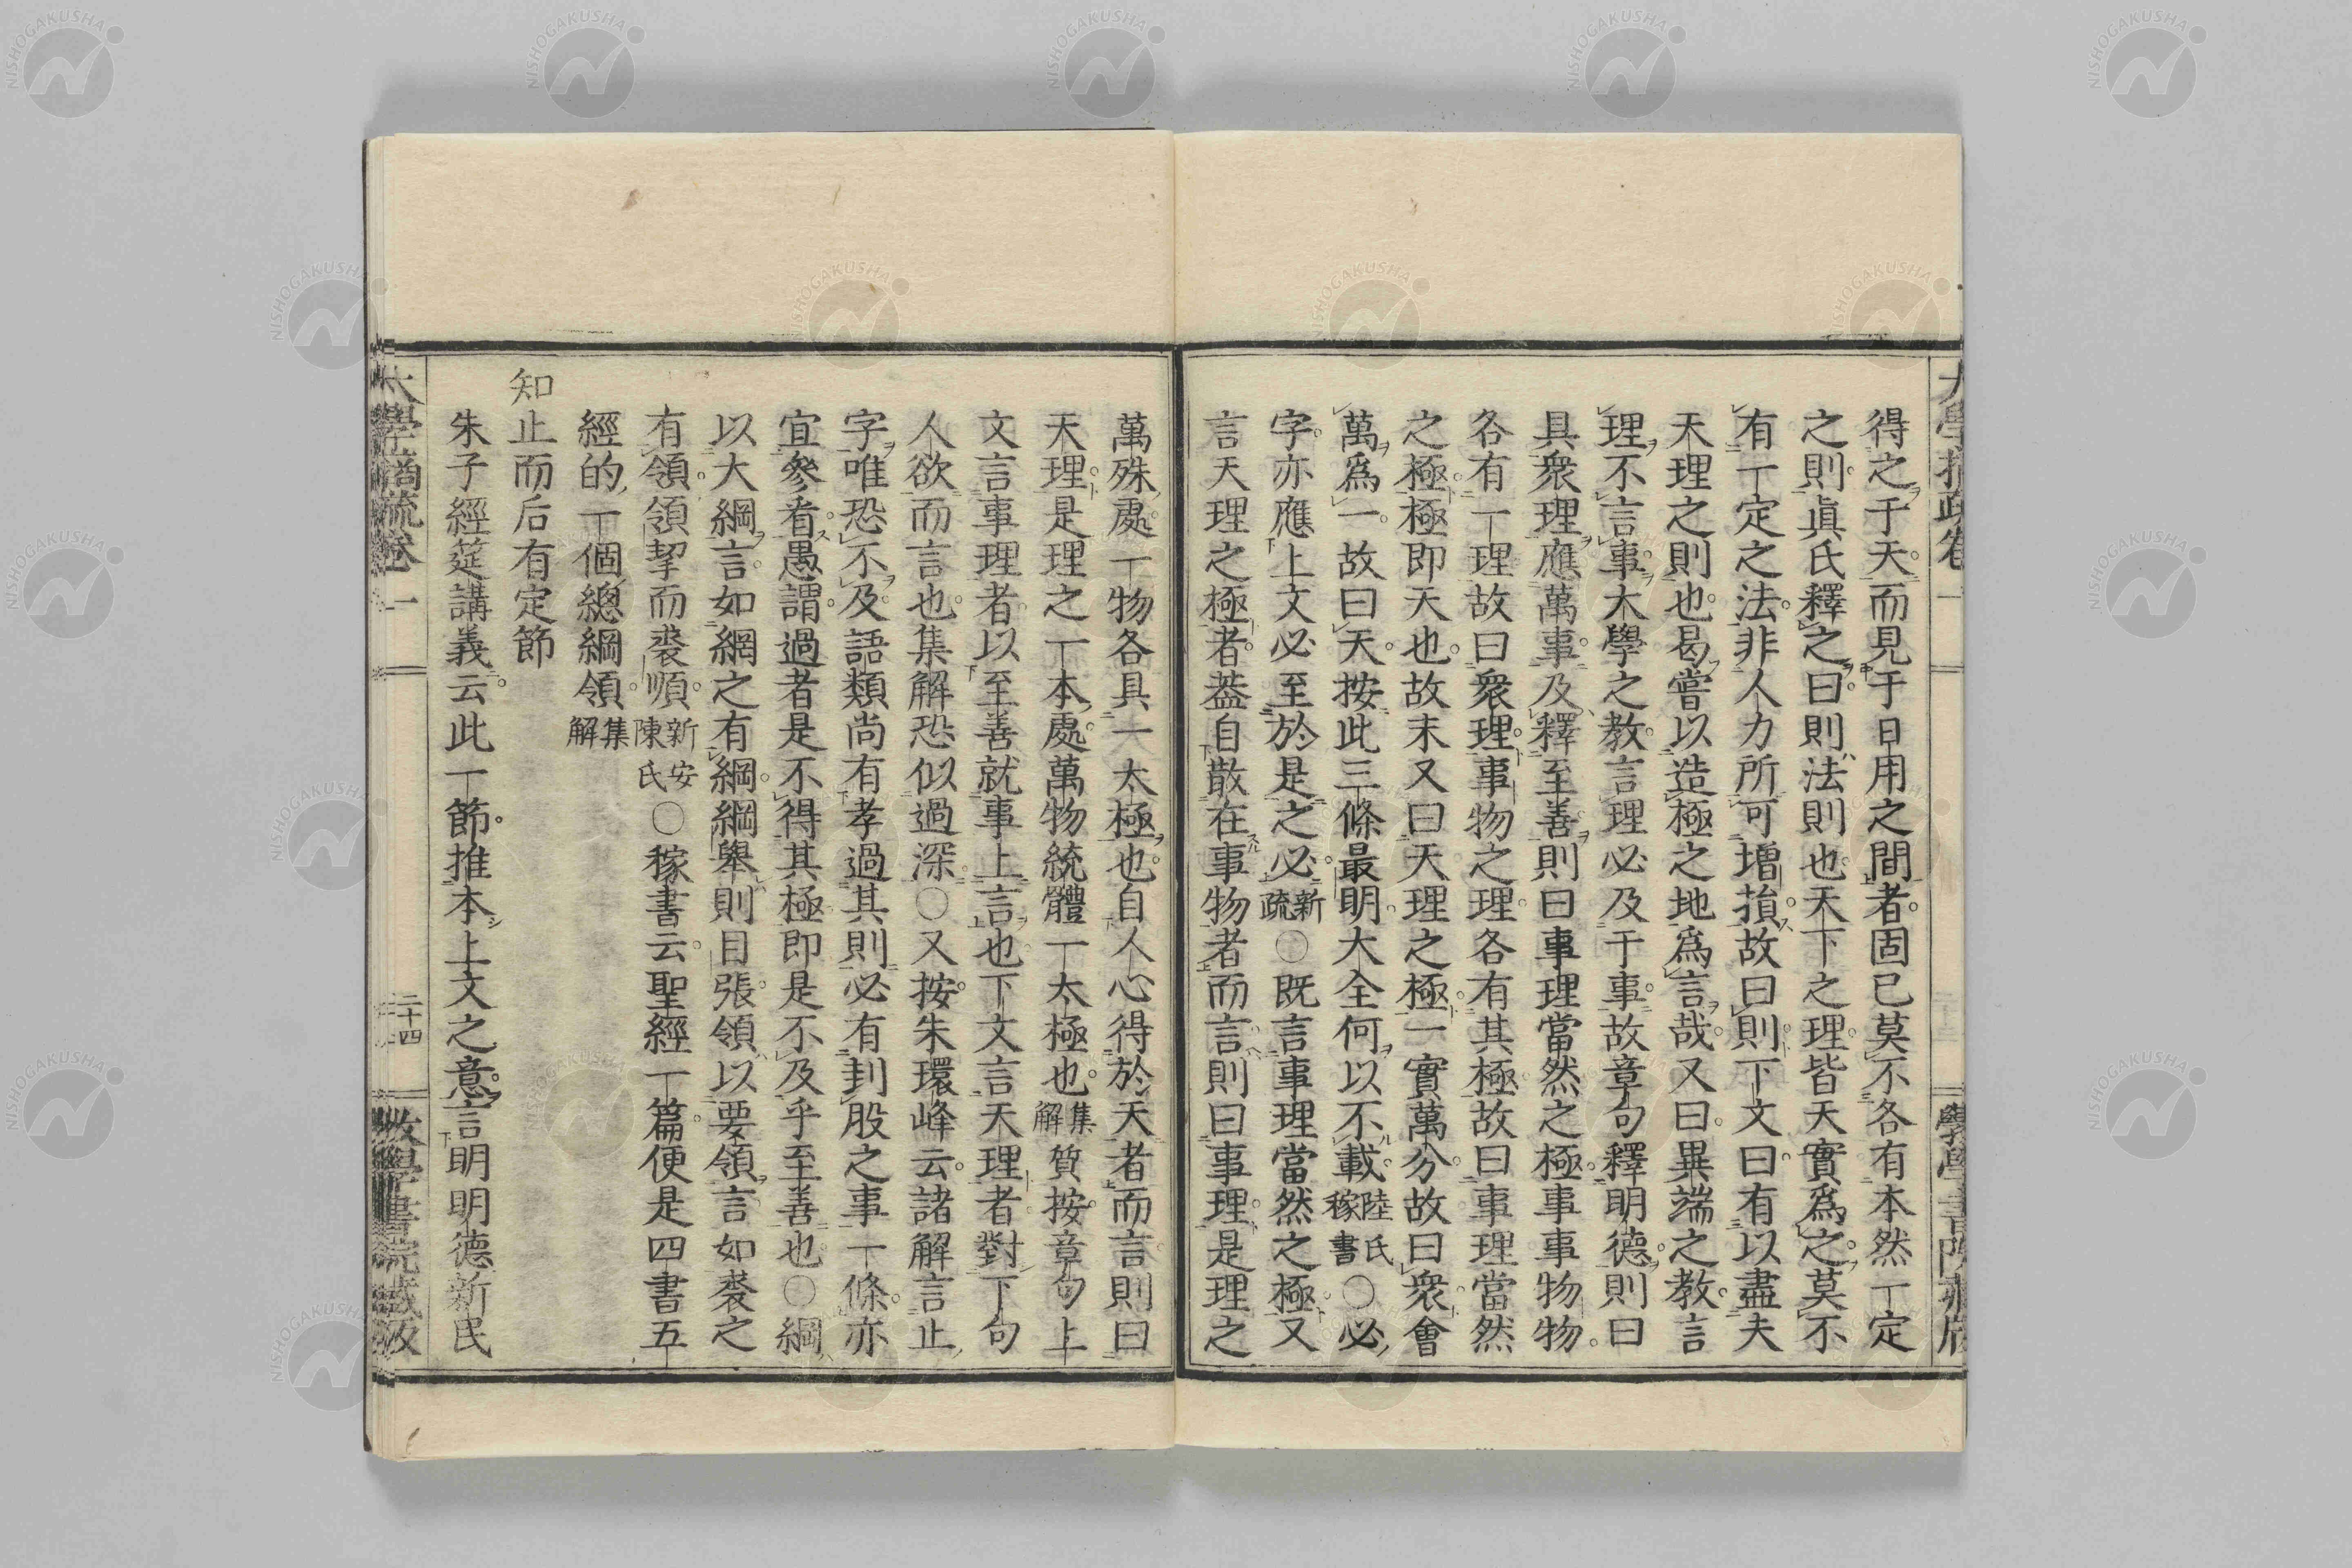 得之于天而見于日用之間者固已莫不各有本然一定
之則眞氏釋之曰則法則也天下之理皆天實爲之莫不
有一定之法非人力所可增損故曰則下文曰有以盡夫
天理之則也曷嘗以造極之地爲言哉又曰異端之教言
理不言事大學之教言理必及于事故章句釋明德則曰
具衆理應萬事及釋至善則曰事理當然之極事事物物
各有一理故曰衆理事物之理各有其極故曰事理當然
之極極即天也故末又曰天理之極一實萬分故曰衆會
萬爲一故曰天按此三條最明大全何以不載陸氏稼書〇必
字亦應上文必至於是之必新疏〇既言事理當然之極又
言天理之極者葢自散在事物者而言則曰事理是理之
萬殊處一物各具一太極也自人心得於天者而言則曰
天理是理之一本處萬物統體一太極也集解質按章句上
文言事理者以至善就事上言也下文言天理者對下句
人欲而言也集解恐似過深〇又按朱環峰云諸解言止
字唯恐不及語類尚有孝過其則必有刲股之事一條亦
宜參看愚謂過者是不得其極即是不及乎至善也〇綱
以大綱言如網之有綱綱舉則目張領以要領言如裘之
有領領挈而裘順新安陳氏〇稼書云聖經一篇便是四書五
經的一個總綱領集解
知止而后有定節
朱子經筵講義云此一節推本上文之意言明明德新民
大學摘疏卷一
二十四
斆學書院藏版